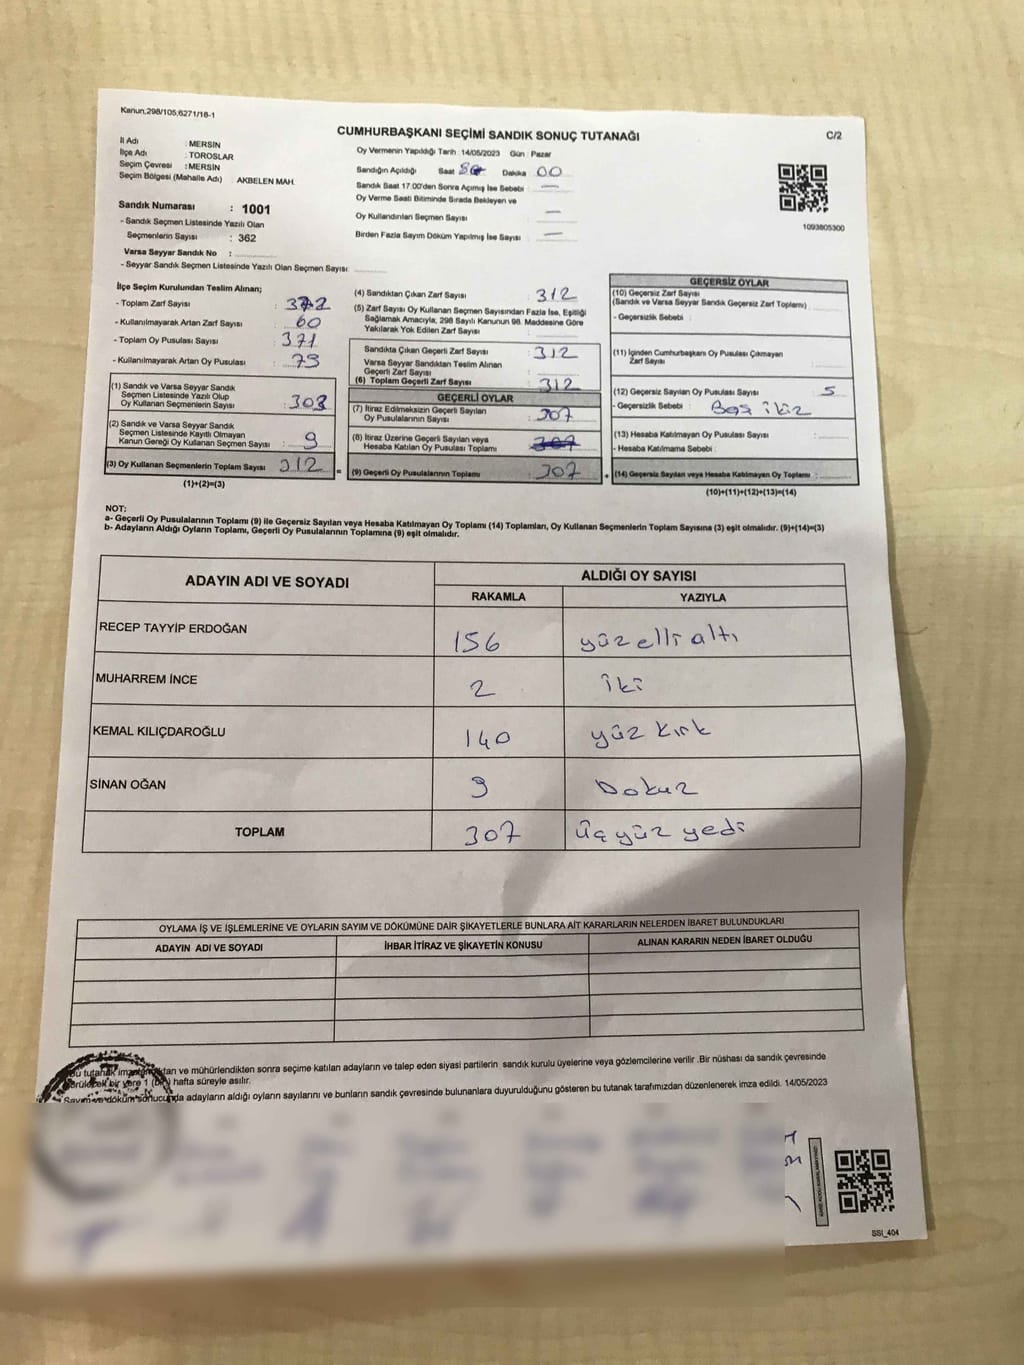 Kanun,298/105,6271/16-1
CUMHURBAŞKANI SEÇİMİ SANDIK SONUÇ TUTANAĞI
C/2
İl Adı : MERSİN
İlçe Adı : TOROSLAR
Seçim Çevresi : MERSİN
Seçim Bölgesi (Mahalle Adı) AKBELEN MAH.
Oy Vermenin Yapıldığı Tarih : 14/05/2023 Gün : Pazar
Sandığın Açıldığı Saat Dakika 00
Sandık Saat 17.00'den Sonra Açımış İse Sebebi : —
Oy Verme Saati Bitiminde Sırada Bekleyen ve
Oy Kullandırılan Seçmen Sayısı —
Birden Fazla Sayım Döküm Yapılmış İse Sayısı : —
1093805300
Sandık Numarası : 1001
- Sandık Seçmen Listesinde Yazılı Olan
Seçmenlerin Sayısı : 362
Varsa Seyyar Sandık No :
- Seyyar Sandık Seçmen Listesinde Yazılı Olan Seçmen Sayısı:
İlçe Seçim Kurulundan Teslim Alınan;
- Toplam Zarf Sayısı : 372
- Kullanılmayarak Artan Zarf Sayısı : 60
- Toplam Oy Pusulası Sayısı : 371
- Kullanılmayarak Artan Oy Pusulası
(1) Sandık ve Varsa Seyyar Sandık
Seçmen Listesinde Yazılı Olup
Oy Kullanan Seçmenlerin Sayısı : 303
(2) Sandık ve Varsa Seyyar Sandık
Seçmen Listesinde Kayıtlı Olmayan
Kanun Gereği Oy Kullanan Seçmen Sayısı : 9
(3) Oy Kullanan Seçmenlerin Toplam Sayısı : 312 =
(1)+(2)=(3)
(4) Sandıktan Çıkan Zarf Sayısı : 312
(5) Zarf Sayısı Oy Kullanan Seçmen Sayısından Fazla İse, Eşitliği
Sağlamak Amacıyla, 298 Sayılı Kanunun 98. Maddesine Göre
Yakılarak Yok Edilen Zarf Sayısı :
Sandıkta Çıkan Geçerli Zarf Sayısı : 312
Varsa Seyyar Sandıktan Teslim Alınan
Geçerli Zarf Sayısı :
(6) Toplam Geçerli Zarf Sayısı : 312
GEÇERLİ OYLAR
(7) İtiraz Edilmeksizin Geçerli Sayılan
Oy Pusulasının Sayısı : 307
(8) İtiraz Üzerine Geçerli Sayılan veya
Hesaba Katılan Oy Pusulası Toplamı : 307
(9) Geçerli Oy Pusulalarının Toplamı : 307 +
GEÇERSİZ OYLAR
(10) Geçersiz Zarf Sayısı
(Sandık ve Varsa Seyyar Sandık Geçersiz Zarf Toplamı) :
- Geçersizlik Sebebi :
(11) İçinden Cumhurbaşkanı Oy Pusulası Çıkmayan
Zarf Sayısı :
(12) Geçersiz Sayılan Oy Pusulası Sayısı : 5
- Geçersizlik Sebebi :
(13) Hesaba Katılmayan Oy Pusulası Sayısı :
- Hesaba Katılmama Sebebi :
(14) Geçersiz Sayılan veya Hesaba Katılmayan Oy Toplamı :
(10)+(11)+(12)+(13)=(14)
NOT:
a- Geçerli Oy Pusulalarının Toplamı (9) ile Geçersiz Sayılan veya Hesaba Katılmayan Oy Toplamı (14) Toplamları, Oy Kullanan Seçmenlerin Toplam Sayısına (3) eşit olmalıdır. (9)+(14)=(3)
b- Adayların Aldığı Oyların Toplamı, Geçerli Oy Pusulalarının Toplamına (9) eşit olmalıdır.
ADAYIN ADI VE SOYADI
ALDIĞI OY SAYISI
RAKAMLA YAZIYLA
RECEP TAYYİP ERDOĞAN 156 yüz elli altı
MUHARREM İNCE 2 iki
KEMAL KILIÇDAROĞLU 140 yüz kırk
SİNAN OĞAN 9 Dokuz
TOPLAM 307 üç yüz yedi
OYLAMA İŞ VE İŞLEMLERİNE VE OYLARIN SAYIM VE DÖKÜMÜNE DAİR ŞİKAYETLERLE BUNLARA AİT KARARLARIN NELERDEN İBARET BULUNDUKLARI
ADAYIN ADI VE SOYADI İHBAR İTİRAZ VE ŞİKAYETİN KONUSU ALINAN KARARIN NEDEN İBARET OLDUĞU
Bu tutanak ve mühürlendikten sonra seçime katılan adayların ve talep eden siyasi partilerin sandık kurulu üyelerine veya gözlemcilerine verilir .Bir nüshası da sandık çevresinde
görülecek bir yere 1 (bir) hafta süreyle asılır.
Sayım ve döküm sonucunda adayların aldığı oyların sayılarını ve bunların sandık çevresinde bulunanlara duyurulduğunu gösteren bu tutanak tarafımızdan düzenlenerek imza edildi. 14/05/2023
SSI_404